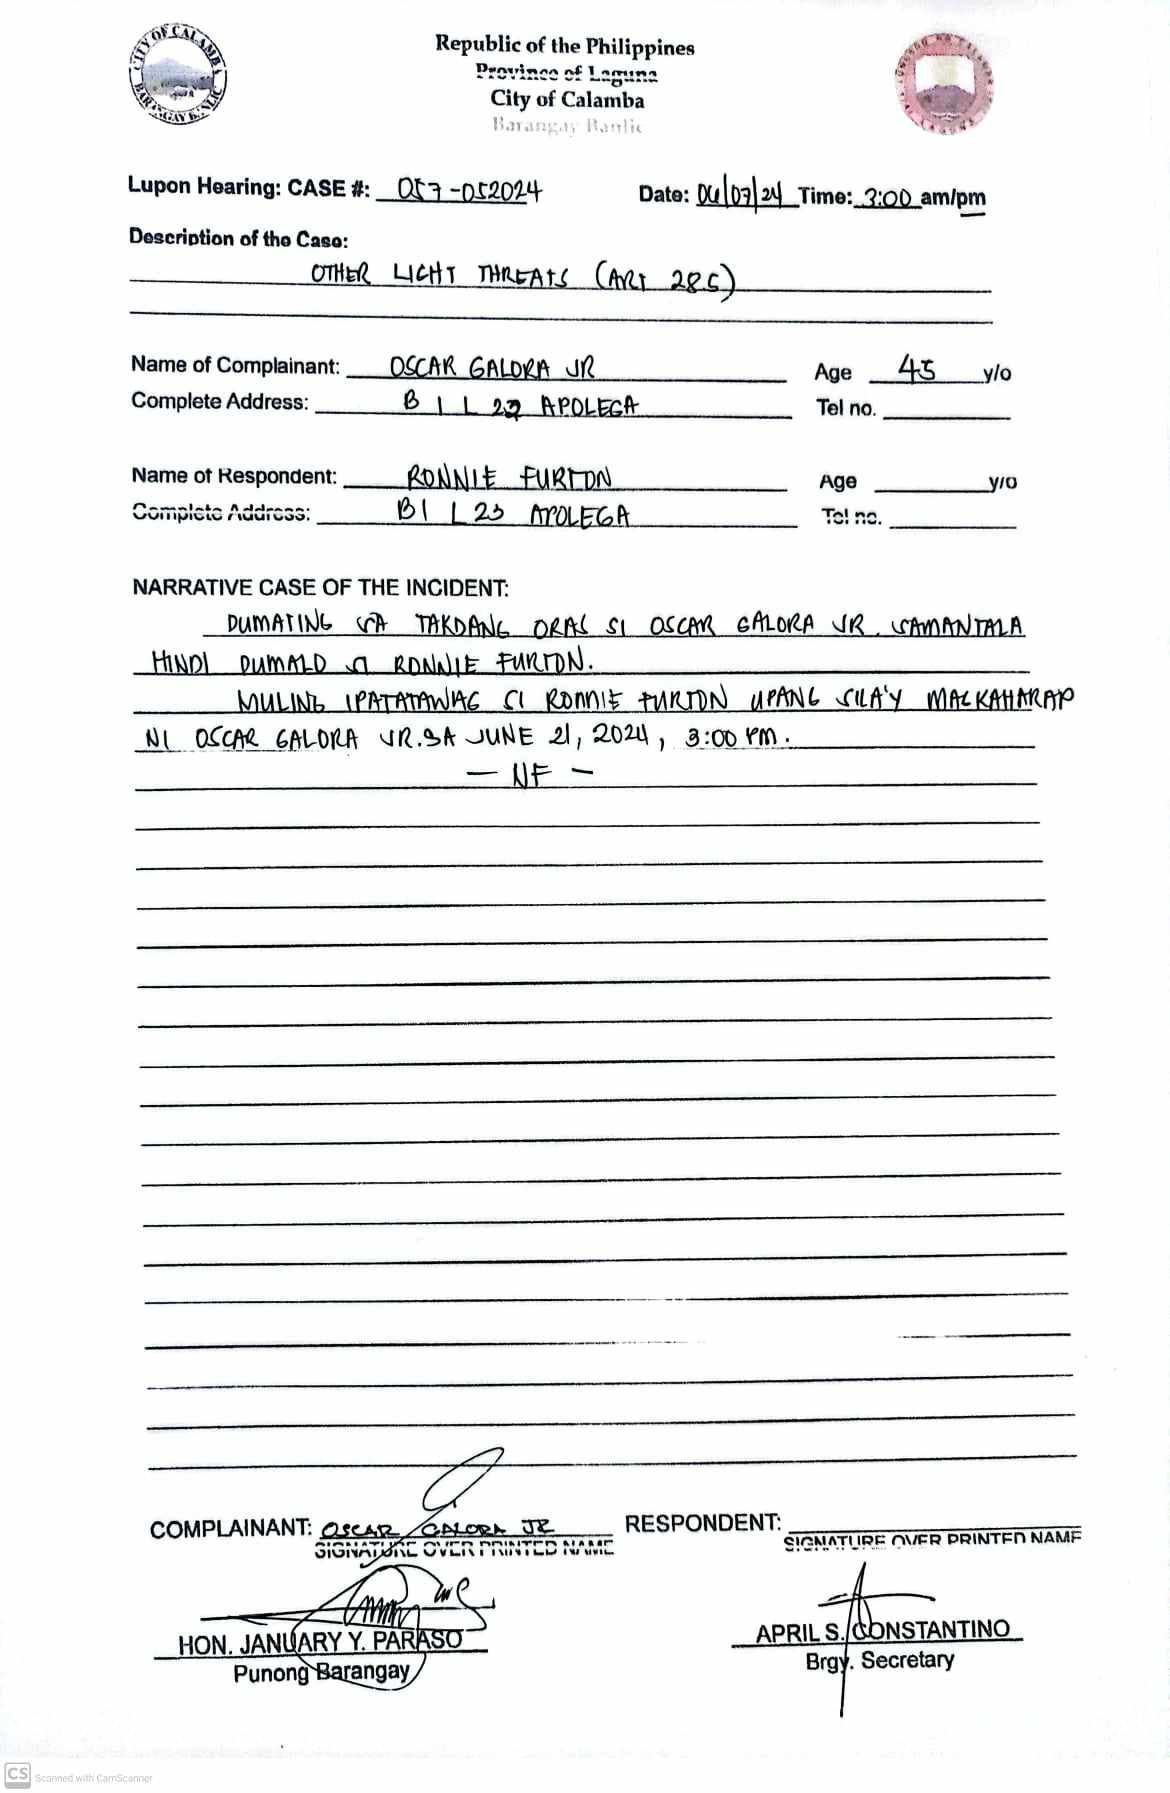 CITY OF CALAMBA
BARANGAY BANLIC
Republic of the Philippines
Province of Laguna
City of Calamba
Barangay Banlic
Lupon Hearing: CASE #: 057-052024 Date: 06/07/24 Time: 3:00 am/pm
Description of the Case:
OTHER LIGHT THREATS (ART 285)
Name of Complainant: OSCAR GALORA JR Age 45 y/o
Complete Address: B 1 L 23 APOLEGA Tel no.
Name of Respondent: RONNIE FURTON Age y/o
Complete Address: B1 L 23 APOLEGA Tel no.
NARRATIVE CASE OF THE INCIDENT:
DUMATING SA TAKDANG ORAS SI OSCAR GALORA JR. SAMANTALA
HINDI DUMALO SI RONNIE FURTON.
MULING IPATATAWAG SI RONNIE FURTON UPANG SILA'Y MAGKAHARAP
NI OSCAR GALORA JR. SA JUNE 21, 2024, 3:00 PM.
— NF —
COMPLAINANT: OSCAR GALORA JR RESPONDENT:
SIGNATURE OVER PRINTED NAME SIGNATURE OVER PRINTED NAME
HON. JANUARY Y. PARASO APRIL S. CONSTANTINO
Punong Barangay Brgy. Secretary
CS Scanned with CamScanner